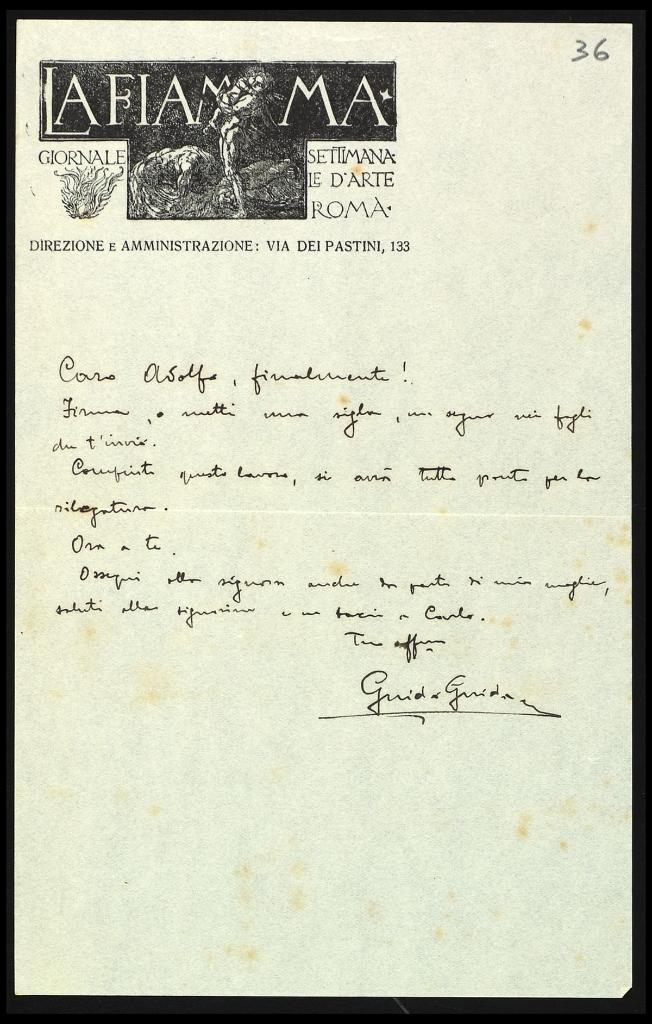 36
LA FIAMMA
GIORNALE SETTIMANA
LE D'ARTE
ROMA
DIREZIONE E AMMINISTRAZIONE: VIA DEI PASTINI, 133
Caro Adolfo, finalmente!
Firma, o metti una sigla, un segno nei fogli
che t'invio.
Compiuto questo lavoro, si avrà tutto pronto per la
rilegatura.
Ora a te.
Ossequi alla signora anche da parte di mia moglie,
saluti alla signorina e un bacio a Carlo.
Tuo affmo
Guido Guida